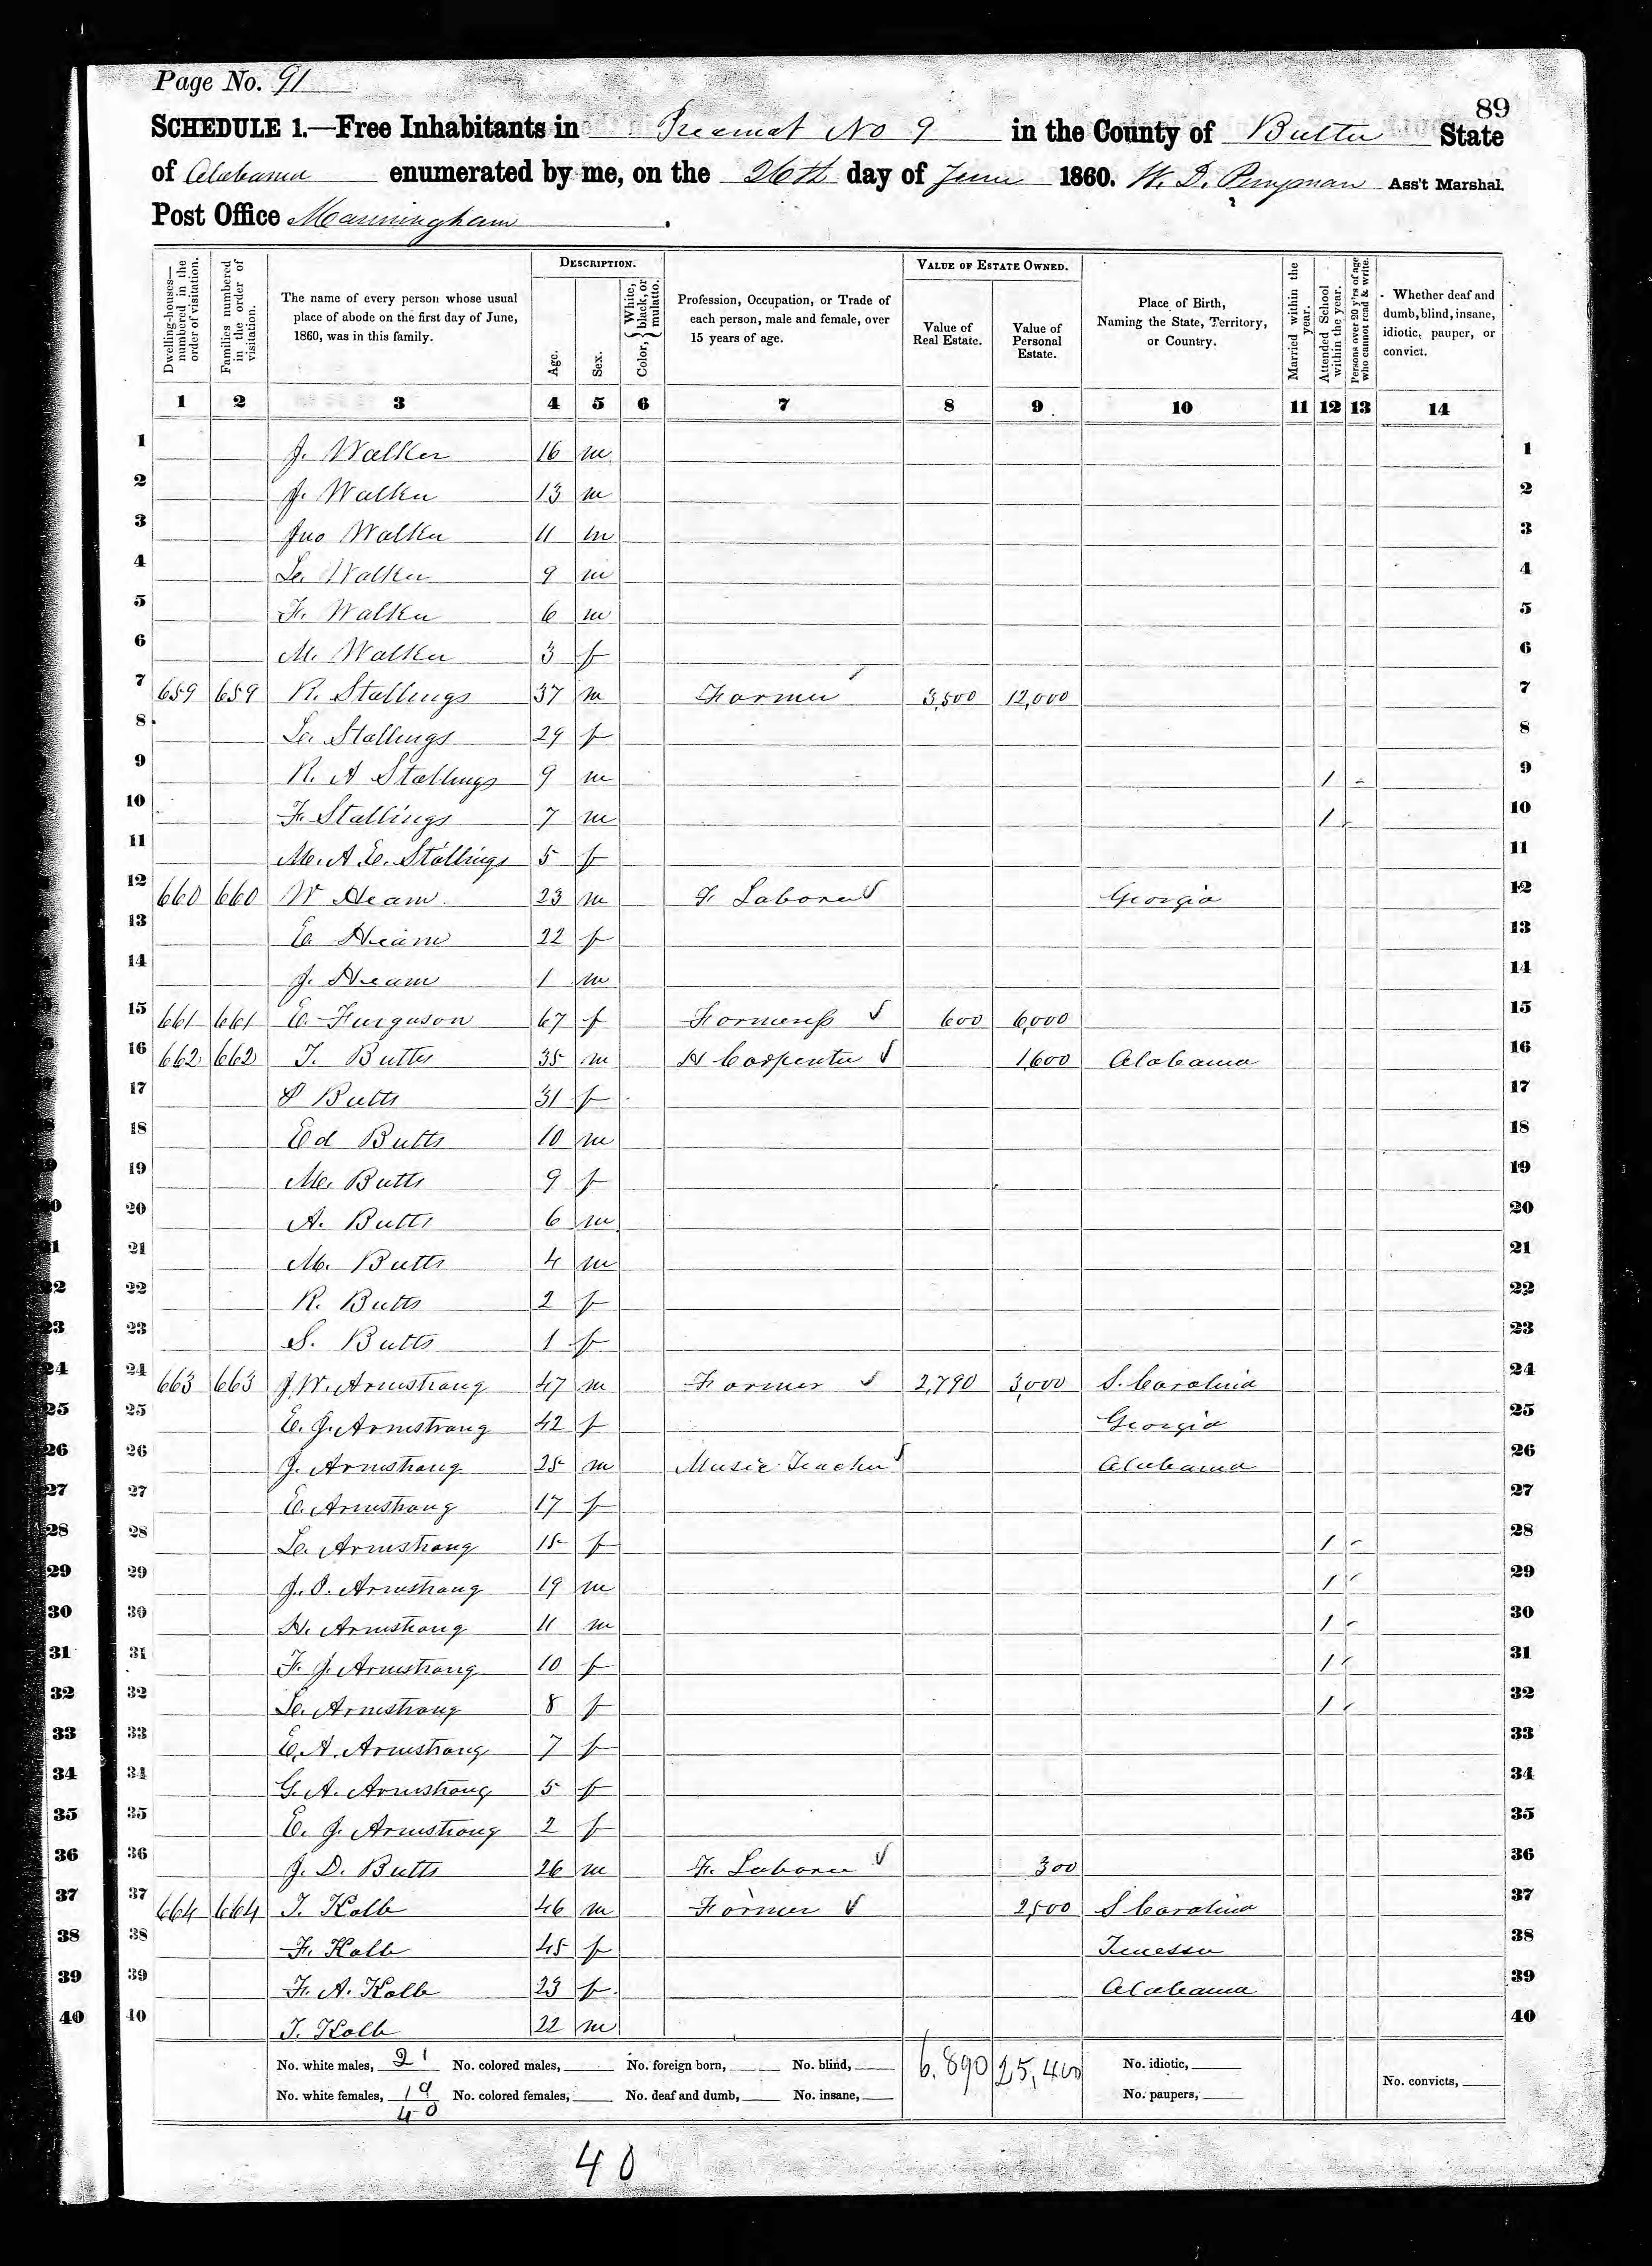 Page No. 91
89
SCHEDULE 1.—Free Inhabitants in Precinct No 9 in the County of Butler State
of Alabama enumerated by me, on the 26th day of June 1860. W. D. Perryman Ass't Marshal.
Post Office Manningham.
Dwelling-houses—numbered in the order of visitation.
Families numbered in the order of visitation.
The name of every person whose usual place of abode on the first day of June, 1860, was in this family.
DESCRIPTION.
Age.
Sex.
Color, { White, black, or mulatto.
Profession, Occupation, or Trade of each person, male and female, over 15 years of age.
VALUE OF ESTATE OWNED.
Value of Real Estate.
Value of Personal Estate.
Place of Birth, Naming the State, Territory, or Country.
Married within the year.
Attended School within the year.
Persons over 20 y'rs of age who cannot read & write.
Whether deaf and dumb, blind, insane, idiotic, pauper, or convict.
1 2 3 4 5 6 7 8 9 10 11 12 13 14
1 J. Walker 16 m 1
2 J. Walker 13 m 2
3 Jno Walker 11 m 3
4 L. Walker 9 m 4
5 F. Walker 6 m 5
6 M. Walker 3 f 6
7 659 659 R. Stallings 37 m Farmer 3,500 12,000 7
8 L. Stallings 29 f 8
9 R. A Stallings 9 m 1 9
10 F. Stallings 7 m 1 10
11 M. A. E. Stallings 5 f 11
12 660 660 W 23 m F. Laborer Georgia 12
13 E. 22 f 13
14 J. 1 m 14
15 661 661 E. Furguson 67 f Farmeress 600 6,000 15
16 662 662 T. Butts 35 m H Carpenter 1,600 Alabama 16
17 P Butts 31 f 17
18 Ed Butts 10 m 18
19 M. Butts 9 f 19
20 A. Butts 6 m 20
21 M. Butts 4 m 21
22 R. Butts 2 f 22
23 S. Butts 1 f 23
24 663 663 J. W. Armstrong 47 m Farmer 2,790 3,000 S. Carolina 24
25 E. J. Armstrong 42 f Georgia 25
26 J. Armstrong 25 m Music Teacher Alabama 26
27 E. Armstrong 17 f 27
28 L. Armstrong 15 f 1 28
29 J. P. Armstrong 19 m 1 29
30 H. Armstrong 11 m 1 30
31 F. J. Armstrong 10 f 1 31
32 L. Armstrong 8 f 1 32
33 E. A. Armstrong 7 f 33
34 G. A. Armstrong 5 f 34
35 E. J. Armstrong 2 f 35
36 J. D. Butts 26 m F. Laborer 300 36
37 664 664 T. Kolb 46 m Farmer 2,500 S Carolina 37
38 F. Kolb 45 f Tenessee 38
39 F. A. Kolb 23 f Alabama 39
40 T. Kolb 22 m 40
No. white males, 21 No. colored males, No. foreign born, No. blind, 6,890 25,400 No. idiotic,
No. white females, 19 No. colored females, No. deaf and dumb, No. insane, No. paupers, No. convicts,
40
40